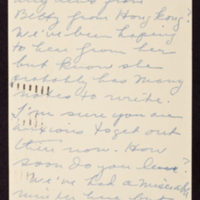 any news from
Betty from Hong Kong?
We've been hoping
to hear from her
but know she
probably has many
notes to write.
I'm sure you are
anxious to get out
there now. How
soon do you leave?
We've had a miserable
winter here but